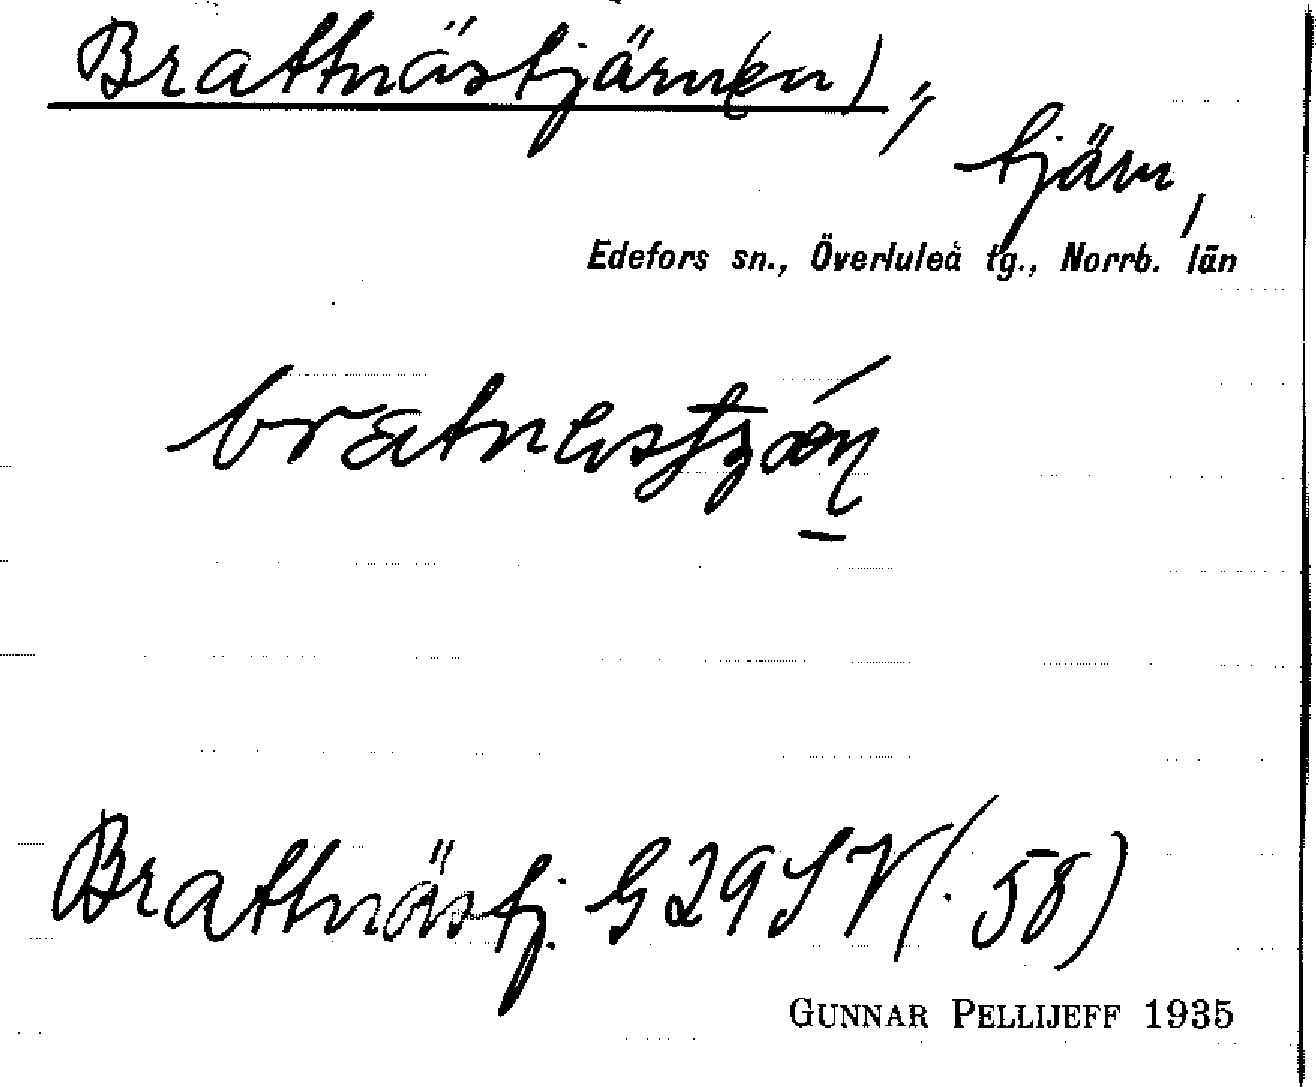 Brattnästjärn(en),
tjärn,
Edefors sn., Överluleå tg., Norrb. län
Brattnästj. G29SV(. 58)
GUNNAR PELLIJEFF 1935